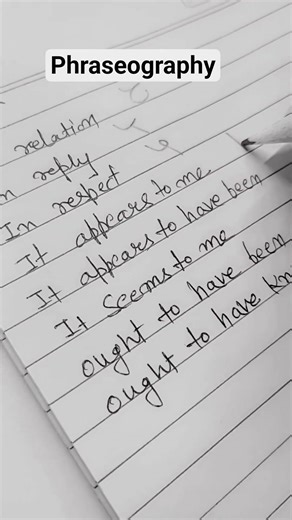 Phraseography
relation
n reply
In respect
It appears to me
It appears to have been
It seems to me
ought to have been
ought to have kn